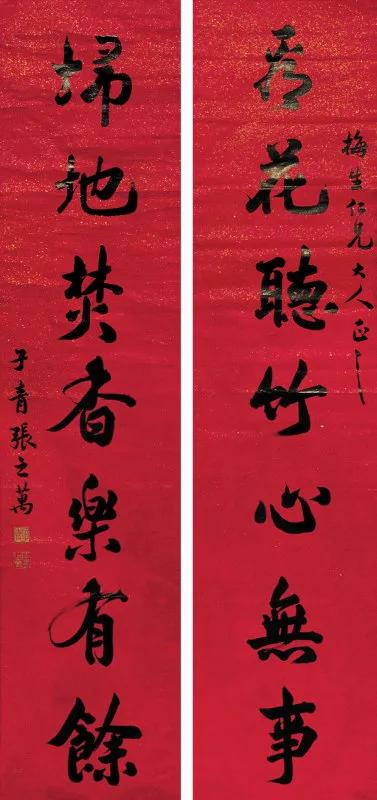 梅生仁兄大人正之
看花聽竹心無事
埽地焚香樂有餘
子青張之萬